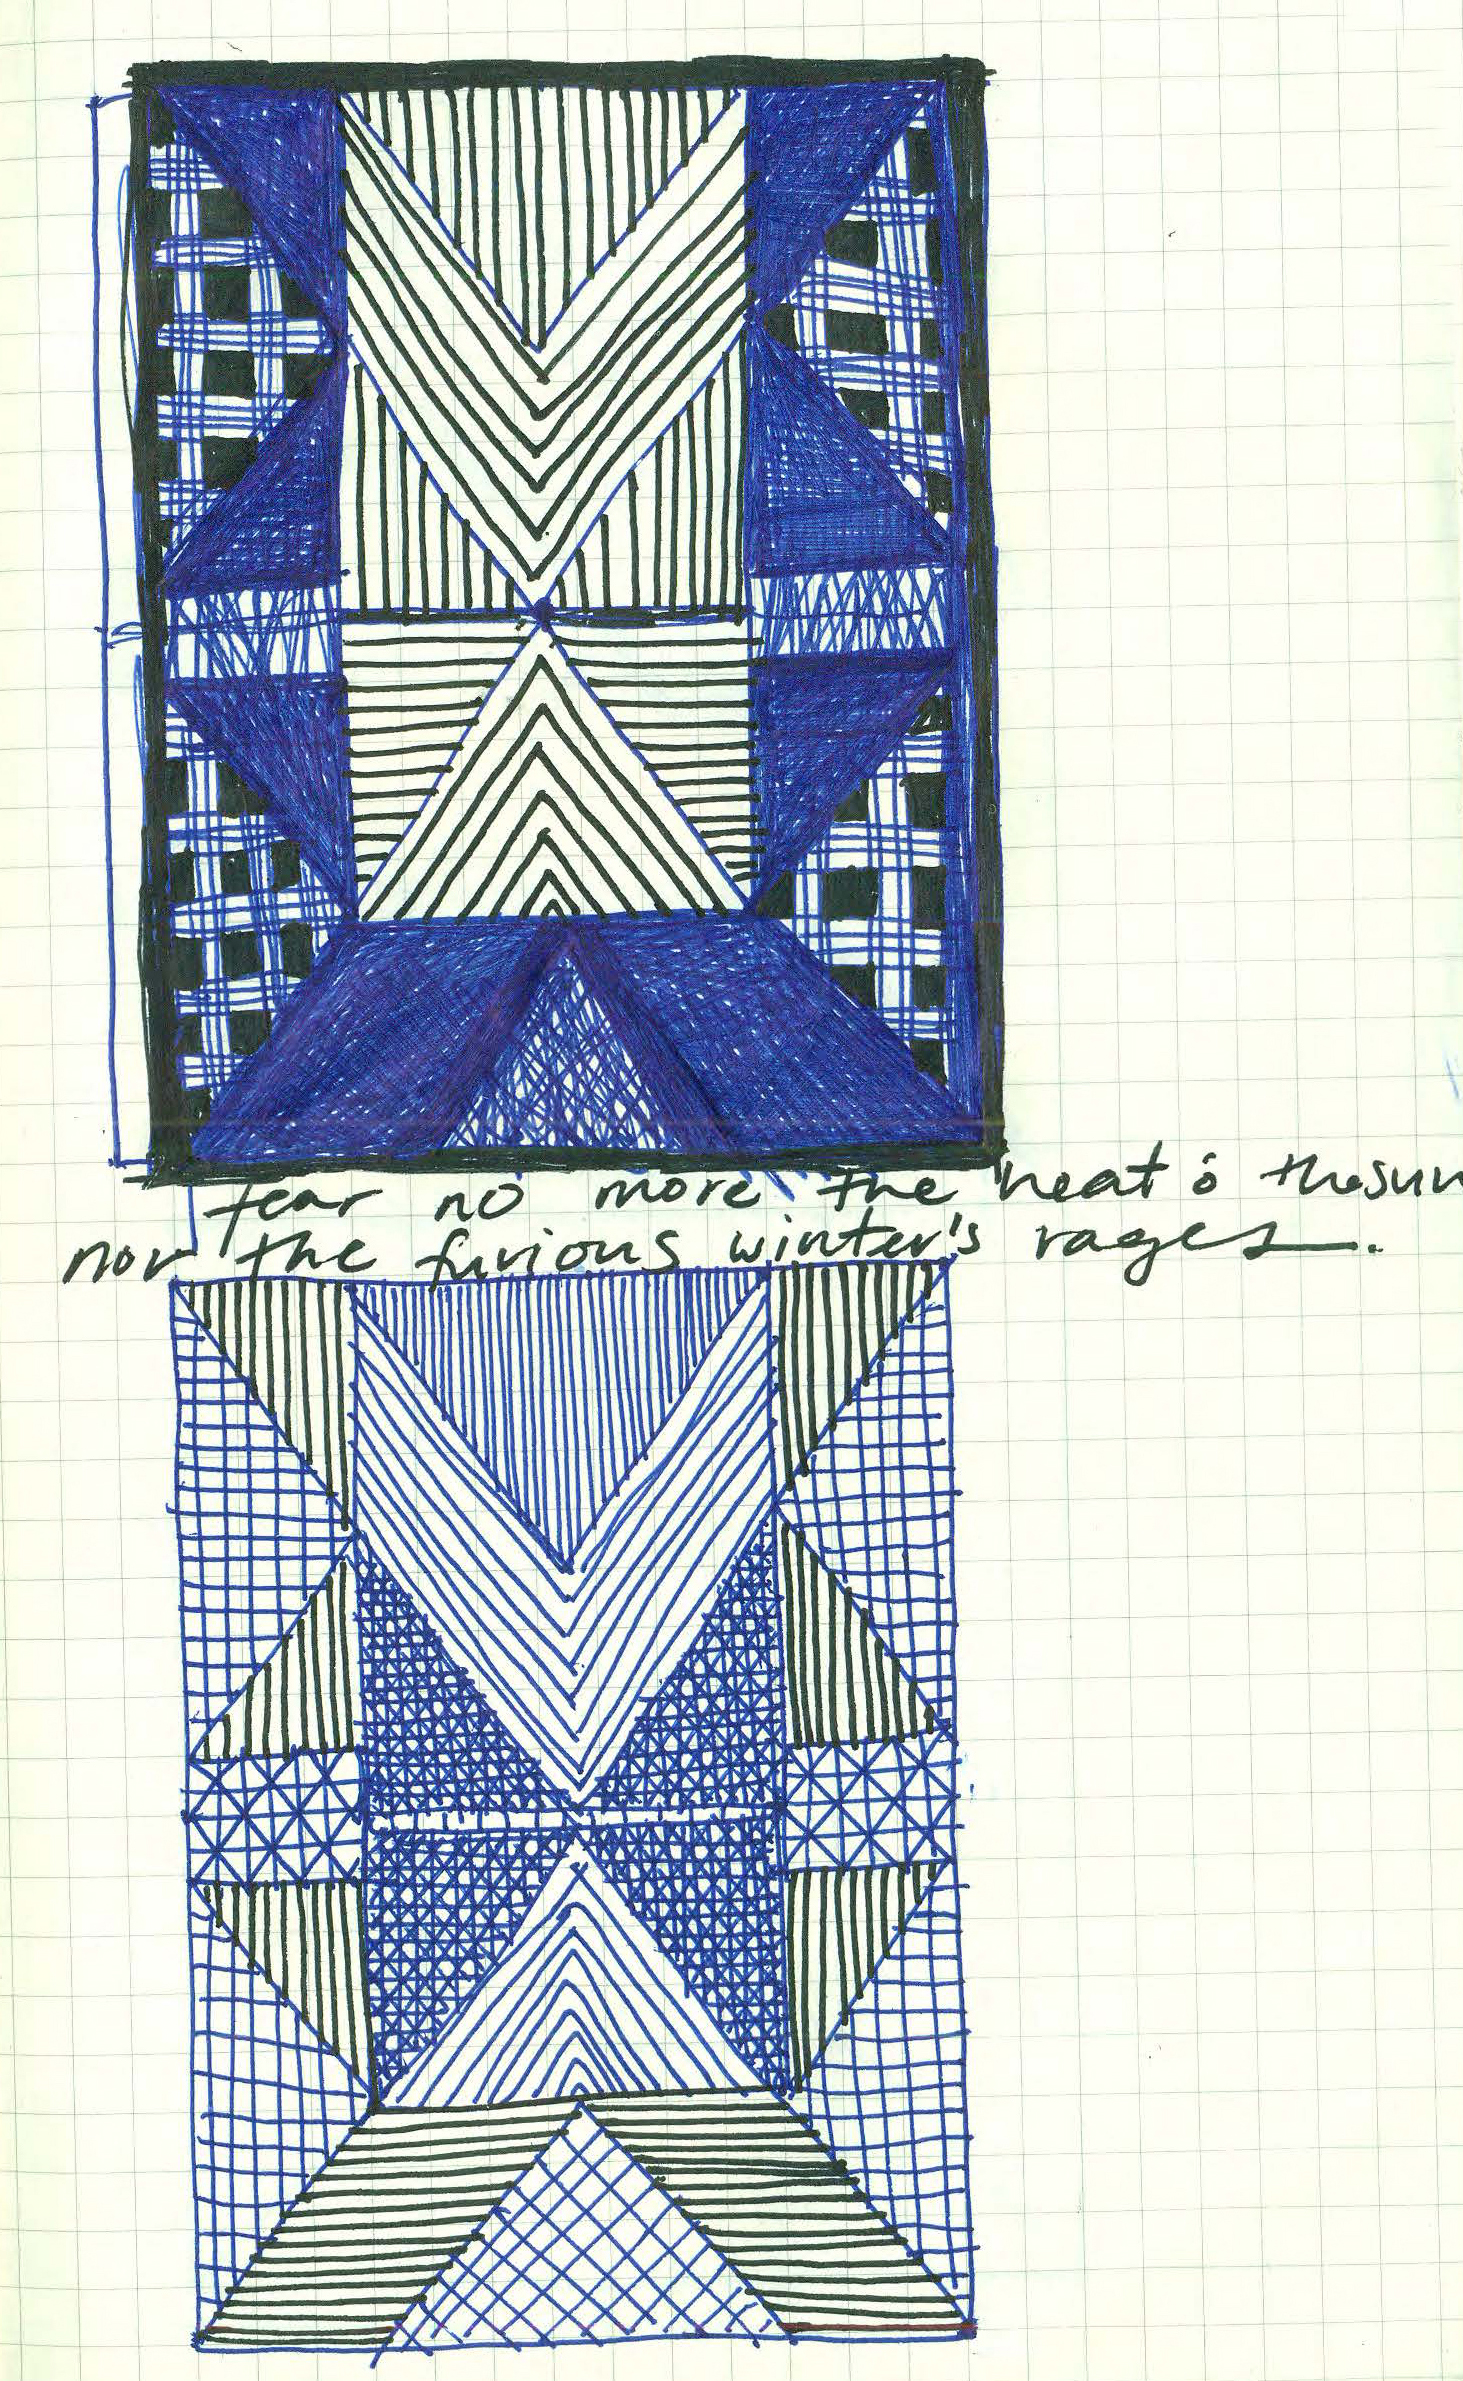 fear no more the heat o' the sun
nor the furious winter's rages.